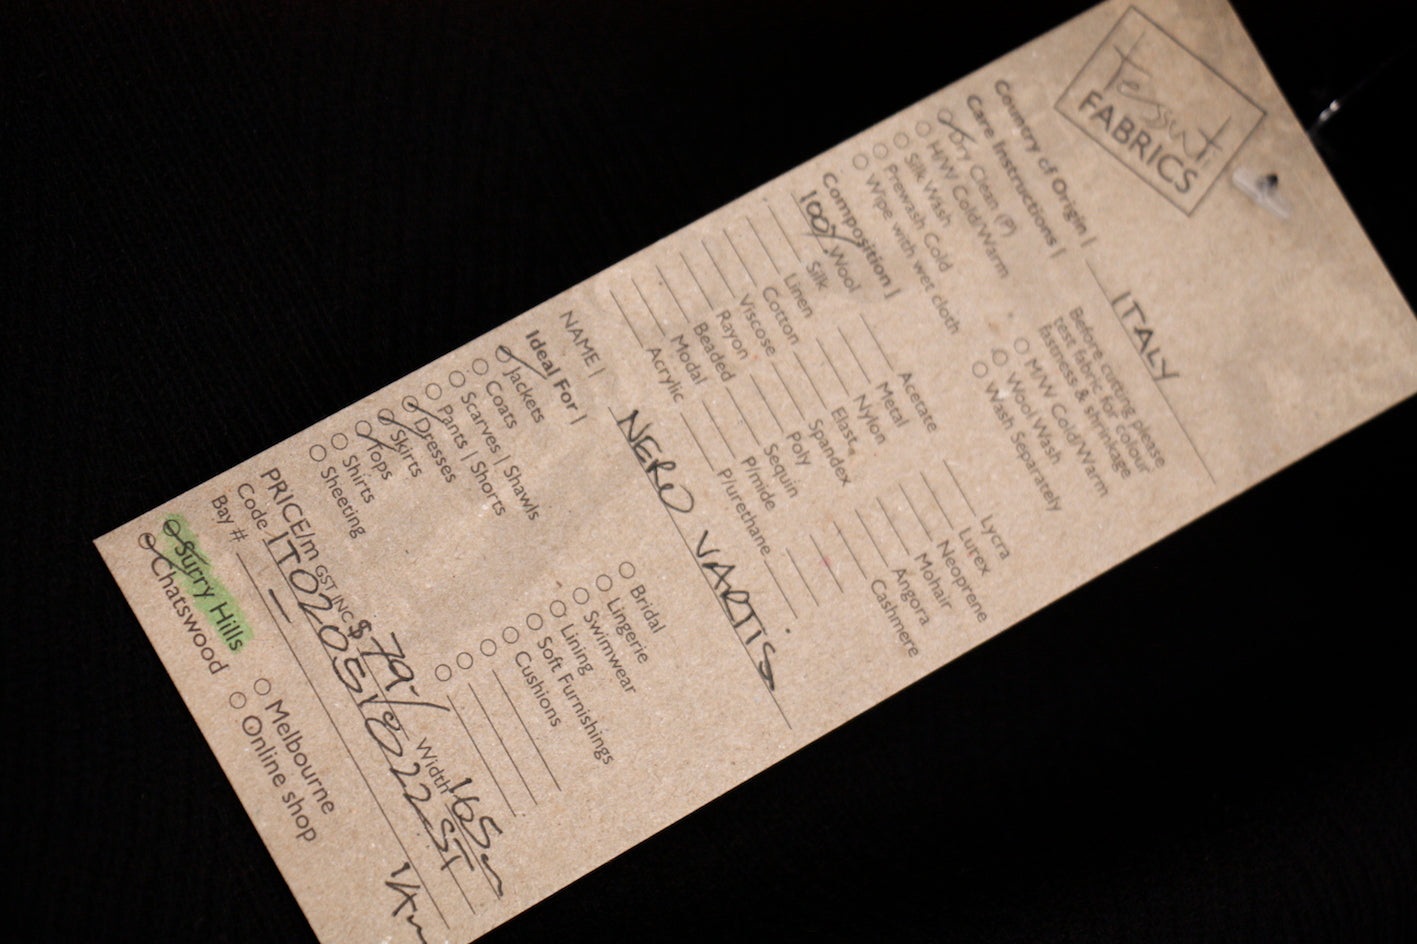 Tessuti
FABRICS
Country of Origin | ITALY
Care Instructions |
Dry Clean (P)
H/W Cold/Warm
Silk Wash
Prewash Cold
Wipe with wet cloth
Before cutting please
test fabric for colour
fastness & shrinkage
M/W Cold/Warm
Wool Wash
Wash Separately
Composition |
100% Wool
Silk
Linen
Cotton
Viscose
Rayon
Beaded
Modal
Acrylic
Acetate
Metal
Nylon
Elast.
Spandex
Poly
Sequin
P/mide
P/urethane
Lycra
Lurex
Neoprene
Mohair
Angora
Cashmere
NAME | NERO VARTIS
Ideal For |
Jackets
Coats
Scarves | Shawls
Pants | Shorts
Dresses
Skirts
Tops
Shirts
Sheeting
Bridal
Lingerie
Swimwear
Lining
Soft Furnishings
Cushions
PRICE/m GST INC $ 79.- Width 165
Code
Bay # -
Surry Hills
Chatswood
Melbourne
Online shop